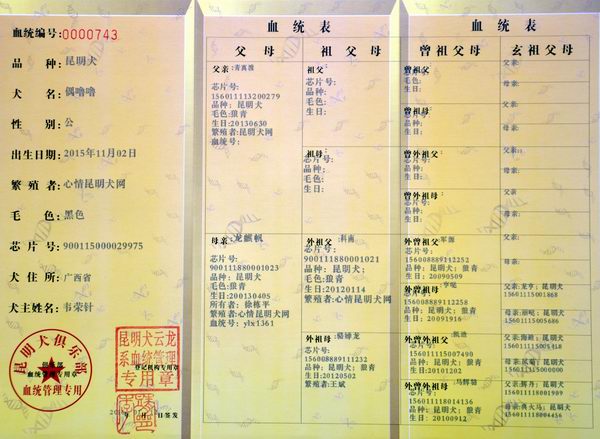 血统编号:0000743
品 种:昆明犬
犬 名:偶噜噜
性 别:公
出生日期:2015年11月02日
繁殖者:心情昆明犬网
毛 色:黑色
芯片号:900115000029975
犬住所:广西省
犬主姓名:韦荣针
昆明犬俱乐部
血统管理专用章
血统管理专用
昆明犬云龙
系血统管理
登记机构专用章
专用章
年 月 日签发
血统表
父母
祖父母
父亲:青离雅
芯片号:
156011113200279
品种:昆明犬
毛色:狼青
生日:20130630
繁殖者:昆明犬网
血统号:
祖父:
芯片号:
品种:
毛色:
生日:
祖母:
芯片号:
品种:
毛色:
生日:
母亲:龙麒帆
芯片号:
900111880001023
品种:昆明犬
毛色:狼青
生日:200130405
所有者:徐栋平
繁殖者:心情昆明犬网
血统号:ylx1361
外祖父:科南
芯片号:
900111880001021
品种:昆明犬;
毛色:狼青
生日:20120114
繁殖者:心情昆明犬网
外祖母:
芯片号:
156008889111232
品种:昆明犬;
毛色:狼青
生日:20120502
繁殖者:王斌
血统表
曾祖父母
玄祖父母
曾祖父:
芯片号:
品种:
毛色:
生日:
曾祖母:
芯片号:
品种:
毛色:
生日:
曾外祖父:
芯片号:
品种:
毛色:
生日:
曾外祖母:
芯片号:
品种:
毛色:
生日:
曾外祖父:军源
芯片号:
156008889112252
品种:昆明犬;狼青
生日:20090509
曾外祖母:亨呢
芯片号:
156008889112258
品种:昆明犬;狼青
生日:20091916
曾外祖父:凯迪
芯片号:
156011115007490
品种:昆明犬;狼青
生日:20101202
曾外祖母:乌辉翁
芯片号:
156011118014136
品种:昆明犬;狼青
生日:20100912
父亲:
母亲:
父亲:
母亲:
父亲:
母亲:
父亲:
母亲:
父亲:
母亲:
父亲:龙亨;昆明犬
156011115001868
母亲:昆明犬
156011115005686
父亲:海踏;昆明犬
156011115005154
母亲:昆明犬
156011115000000
父亲:辉丹;昆明犬
156011118001909
母亲:奥火马;昆明犬
156011118004456